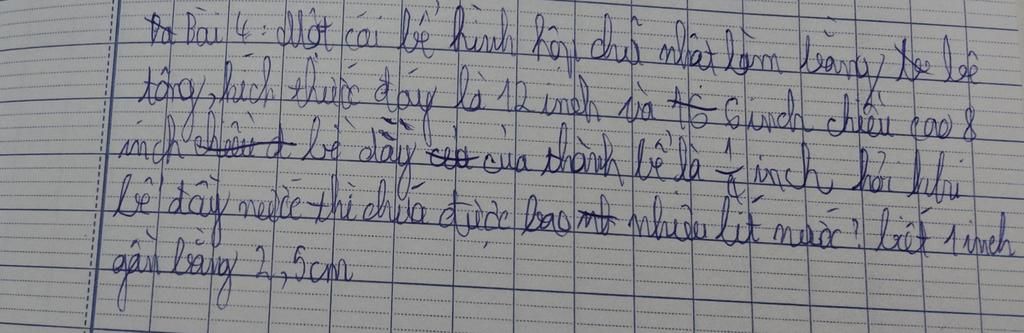 Bài 4: Một cái bể hình hộp chữ nhật làm bằng bê
tông, kích thước đáy là 12 inch và 6 inch chiều cao 8
inch bề dầy của thành bể là 1/4 inch hỏi khi
bể đầy nước thì chứa được bao nhiêu lít nước? biết 1 inch
gần bằng 2,5cm